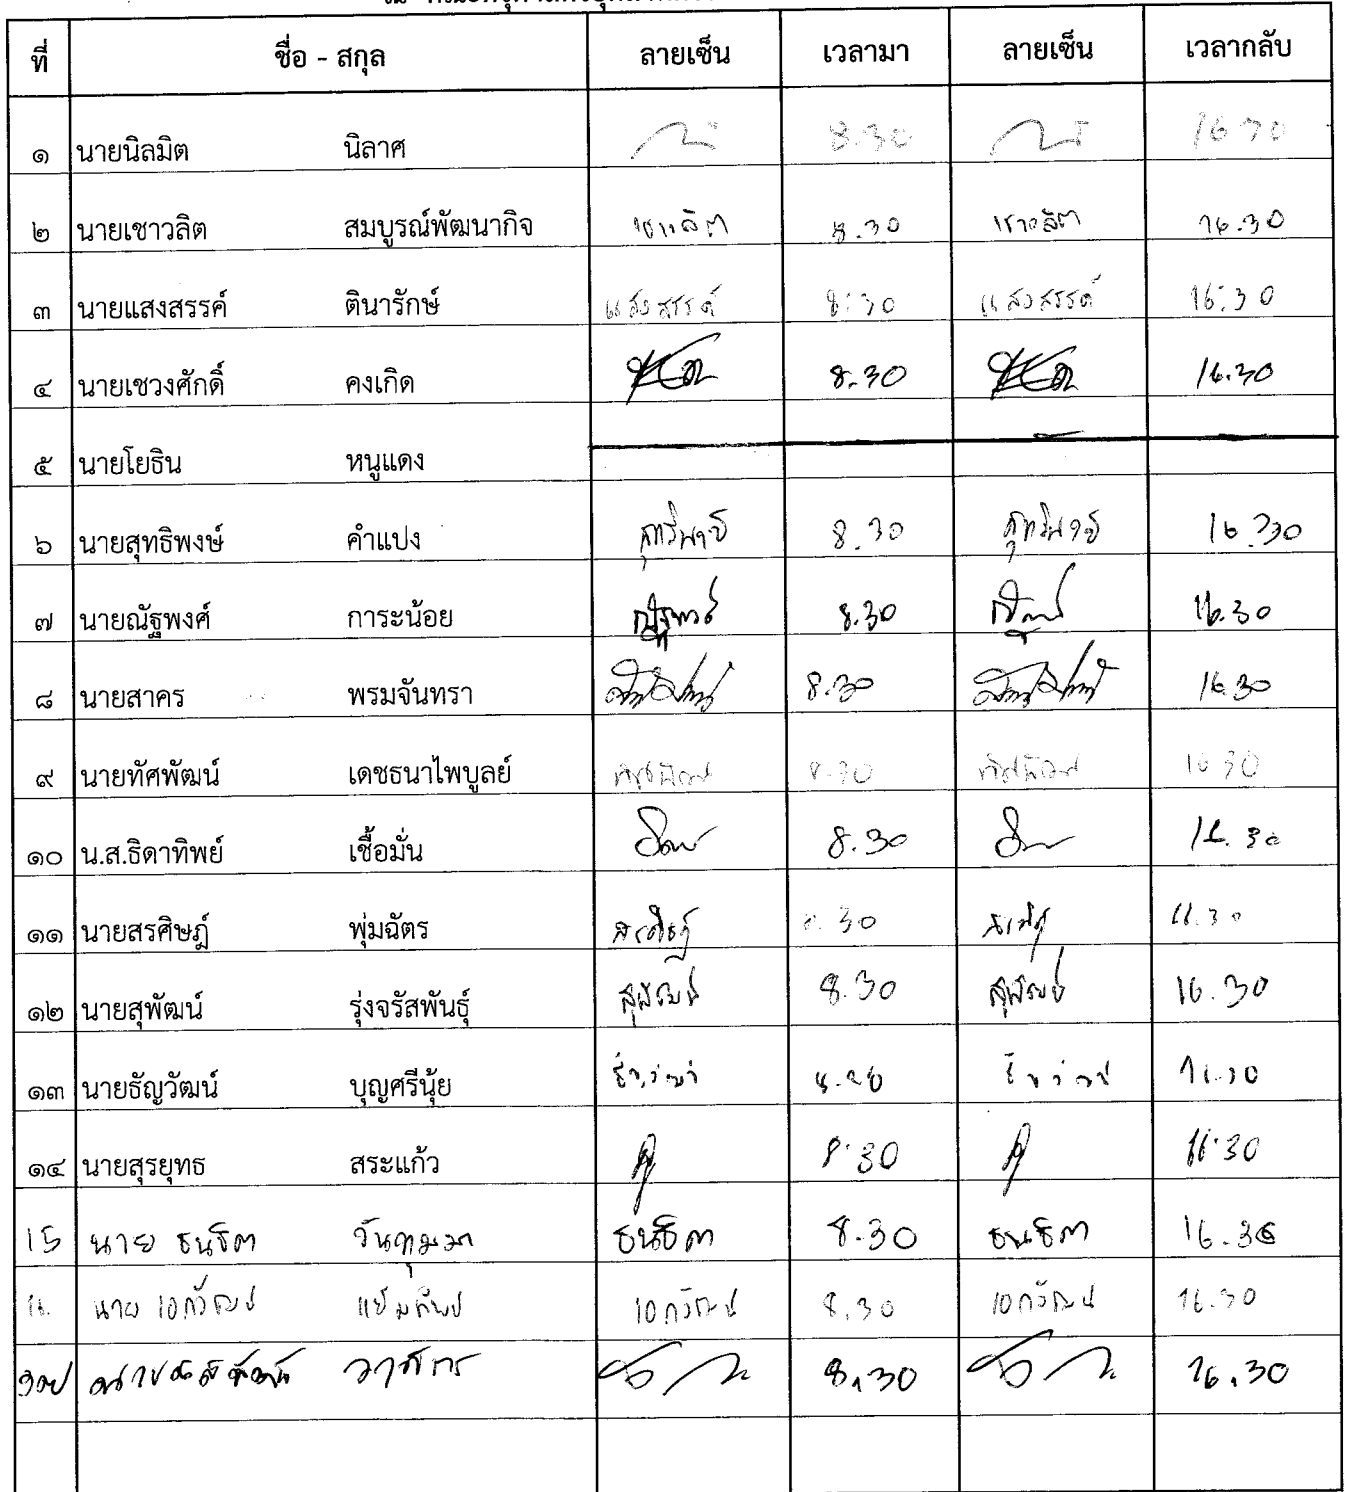 ที่ ชื่อ - สกุล ลายเซ็น เวลามา ลายเซ็น เวลากลับ
๑ นายนิลมิต นิลาศ 8.30 16.30
๒ นายเชาวลิต สมบูรณ์พัฒนากิจ เชาวลิต 8.30 เชาวลิต 16.30
๓ นายแสงสรรค์ ตินารักษ์ แสงสรรค์ 8.30 แสงสรรค์ 16.30
๔ นายเชวงศักดิ์ คงเกิด 8.30 16.30
๕ นายโยธิน หนูแดง
๖ นายสุทธิพงษ์ คำแปง 8.30 16.30
๗ นายณัฐพงศ์ การะน้อย ณัฐพงศ์ 8.30 16.30
๘ นายสาคร พรมจันทรา 8.30 16.30
๙ นายทัศพัฒน์ เดชธนาไพบูลย์ ทัศพัฒน์ 8.30 ทัศพัฒน์ 16.30
๑๐ น.ส.ธิดาทิพย์ เชื้อมั่น 8.30 16.30
๑๑ นายสรศิษฎ์ พุ่มฉัตร สรศิษฎ์ 8.30 16.30
๑๒ นายสุพัฒน์ รุ่งจรัสพันธุ์ สุพัฒน์ 8.30 สุพัฒน์ 16.30
๑๓ นายธัญวัฒน์ บุญศรีนุ้ย ธัญวัฒน์ 8.30 ธัญวัฒน์ 16.30
๑๔ นายสุรยุทธ สระแก้ว 8.30 16.30
15 นาย ธนธิต ธนธิต 8.30 ธนธิต 16.30
16. นาย เอกวัฒน์ เอกวัฒน์ 8.30 เอกวัฒน์ 16.30
8.30 16.30